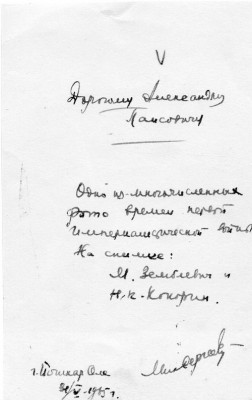 V
Дорогому Александру
Паисовичу
Одно из многочисленных
фото времен первой
империалистической войны
На снимке:
М. Земблевич и
Н.К. Конорин.
г. Йошкар Ола
1965 г.